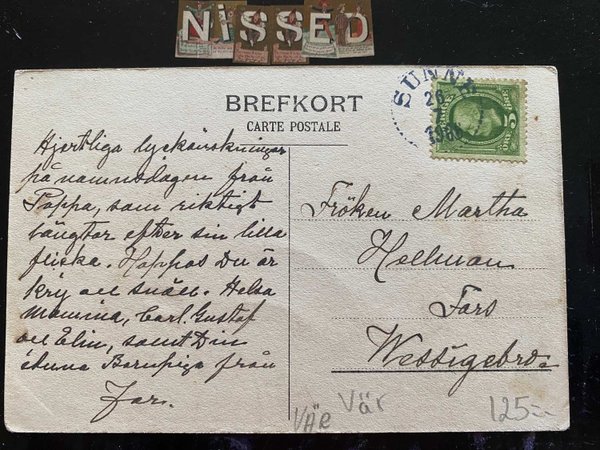 NiSSED
BREFKORT
CARTE POSTALE
SUNNE
26
Hjertliga lyckönskningar
på namnsdagen från
Pappa, som riktigt
längtar efter sin lilla
fliska. Hoppas Du är
kry och snäll. Helsa
Mamma, Carl. Gustaf
och Elin, samt Din
Barnpiga från
Far.
Fröken Martha
Hellman
Fors
Wessigebro.
VÄR
Vär
125:-